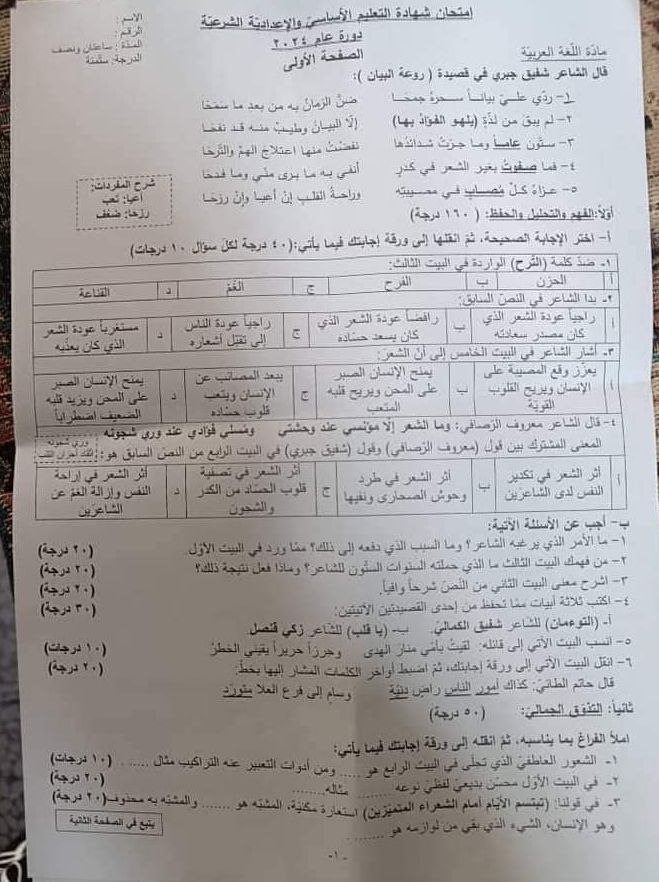 امتحان شهادة التعليم الأساسيّ والإعداديّة الشرعيّة
دورة عام ٢٠٢٤
الصفحة الأولى
الاسم :
الرقم :
المدّة : ساعتان ونصف
الدرجة: ستّمئة
مادّة اللّغة العربيّة
قال الشاعر شفيق جبري في قصيدة ( روعة البيان ):
١- ردّي عليّ بياناً سحرهُ جمحَا ضنَّ الزمانُ به من بعد ما سمَحَا
٢- لم يبقَ من لذّةٍ (يلهو الفؤادُ بها) إلّا البيانُ وطيبٌ منه قد نفحَا
٣- ستّون عاماً وما جرّتْ شدائدُها نفضْتُ منها اعتلاجَ الهمِّ والتّرحَا
٤- فما صفوتُ بغير الشعر في كدرٍ أنفي به ما برى منّي وما فدحَا
٥- عزاءُ كلِّ مُصابٍ في مصيبتِه وراحةُ القلبِ إنْ أعيا وإنْ رزحَا
شرح المفردات:
أعيا: تعب
رزحا: ضعف
أوّلاً: الفهم والتحليل والحفظ: ( ١٦٠ درجة)
أ- اختر الإجابة الصحيحة، ثمّ انقلها إلى ورقة إجابتك فيما يأتي:(٤٠ درجة لكلّ سؤال ١٠ درجات)
١- ضدّ كلمة (التّرح) الواردة في البيت الثالث:
أ الحزن ب الفرح ج الغَمّ د القناعة
٢- بدا الشاعر في النصّ السابق:
أ راجياً عودة الشعر الذي كان مصدر سعادته ب رافضاً عودة الشعر الذي كان يسعد حسّاده ج راجياً عودة الناس إلى تقبّل أشعاره د مستغرباً عودة الشعر الذي كان يعذّبه
٣- أشار الشاعر في البيت الخامس إلى أنّ الشعرَ:
أ يعزّز وقع المصيبة على الإنسان ويريح القلوب القويّة ب يمنح الإنسان الصبر على المحن ويريح قلبه المتعب ج يبعد المصائب عن الإنسان ويتعب قلوب حسّاده د يمنح الإنسان الصبر على المحن ويزيد قلبه الضعيف اضطراباً
٤- قال الشاعر معروف الرّصافي: وما الشعر إلا مؤنسي عند وحشتي ومُسلي فؤادي عند وري شجونه
المعنى المشترك بين قول (معروف الرّصافي) وقول (شفيق جبري) في البيت الرابع من النصّ السابق هو:
وري شجونه: اتّقاد أحزان القلب
أ أثر الشعر في تكدير النفس لدى الشاعرَين ب أثر الشعر في طرد وحوش الصحارى ونفيها ج أثر الشعر في تصفية قلوب الحسّاد من الكدر والشجون د أثر الشعر في إراحة النفس وإزالة الغمّ عن الشاعرَين
ب- أجب عن الأسئلة الآتية:
١- ما الأمر الذي يرغبه الشاعر؟ وما السبب الذي دفعه إلى ذلك؟ ممّا ورد في البيت الأوّل. (٢٠ درجة)
٢- من فهمك البيت الثالث ما الذي حملته السنوات الستّون للشاعر؟ وماذا فعل نتيجة ذلك؟ (٢٠ درجة)
٣- اشرح معنى البيت الثاني من النّصّ شرحاً وافياً. (٢٠ درجة)
٤- اكتب ثلاثة أبيات ممّا تحفظ من إحدى القصيدتين الآتيتين: (٣٠ درجة)
أ- (التوءمان) للشاعر شفيق الكماليّ. ب- (يا قلب) للشّاعر زكي قنصل.
٥- انسب البيت الآتي إلى قائله: لقيتُ بأمّي منارَ الهدى وحِرزاً حريزاً يقيني الخطرْ (١٠ درجات)
٦- انقل البيت الآتي إلى ورقة إجابتك، ثمّ اضبط أواخر الكلمات المشار إليها بخطّ: (٢٠ درجة)
قال حاتم الطائيّ: كذاك أمور الناس راضٍ دنيّة وسامٍ إلى فرع العلا متورّد
ثانياً: التذوّق الجماليّ: (٥٠ درجة)
املأ الفراغ بما يناسبه، ثمّ انقله إلى ورقة إجابتك فيما يأتي:
١- الشعور العاطفيّ الذي تجلّى في البيت الرابع هو ..... ومن أدوات التعبير عنه التراكيب مثال ...... . (١٠ درجات)
٢- في البيت الأوّل محسّن بديعيّ لفظيّ نوعه ........ مثاله........ (٢٠ درجة)
٣- في قولنا: (تبتسم الأيّام أمام الشعراء المتميّزين) استعارة مكنيّة، المشبّه هو ....... والمشبّه به محذوف(٢٠ درجة)
وهو الإنسان، الشيء الذي بقي من لوازمه هو ........ .
يتبع في الصفحة الثانية
-١-